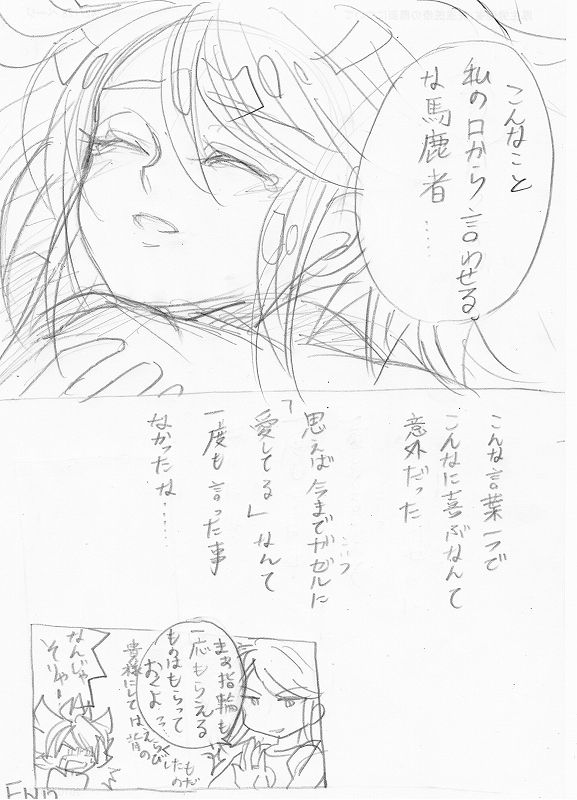 こんなこと
私の口から言わせるな
な馬鹿者
……
こんな言葉一つで
こんなに喜ぶなんて
意外だった
思えば今までガゼルに
こいつ
「愛してる」なんて
一度も言った事
なかったな……
まあ指輪も
一応もらえる
ものはもらって
おくよ…
貴様にしては背
えらび
くしたの
もだ
なんじゃ
そりゃー
END